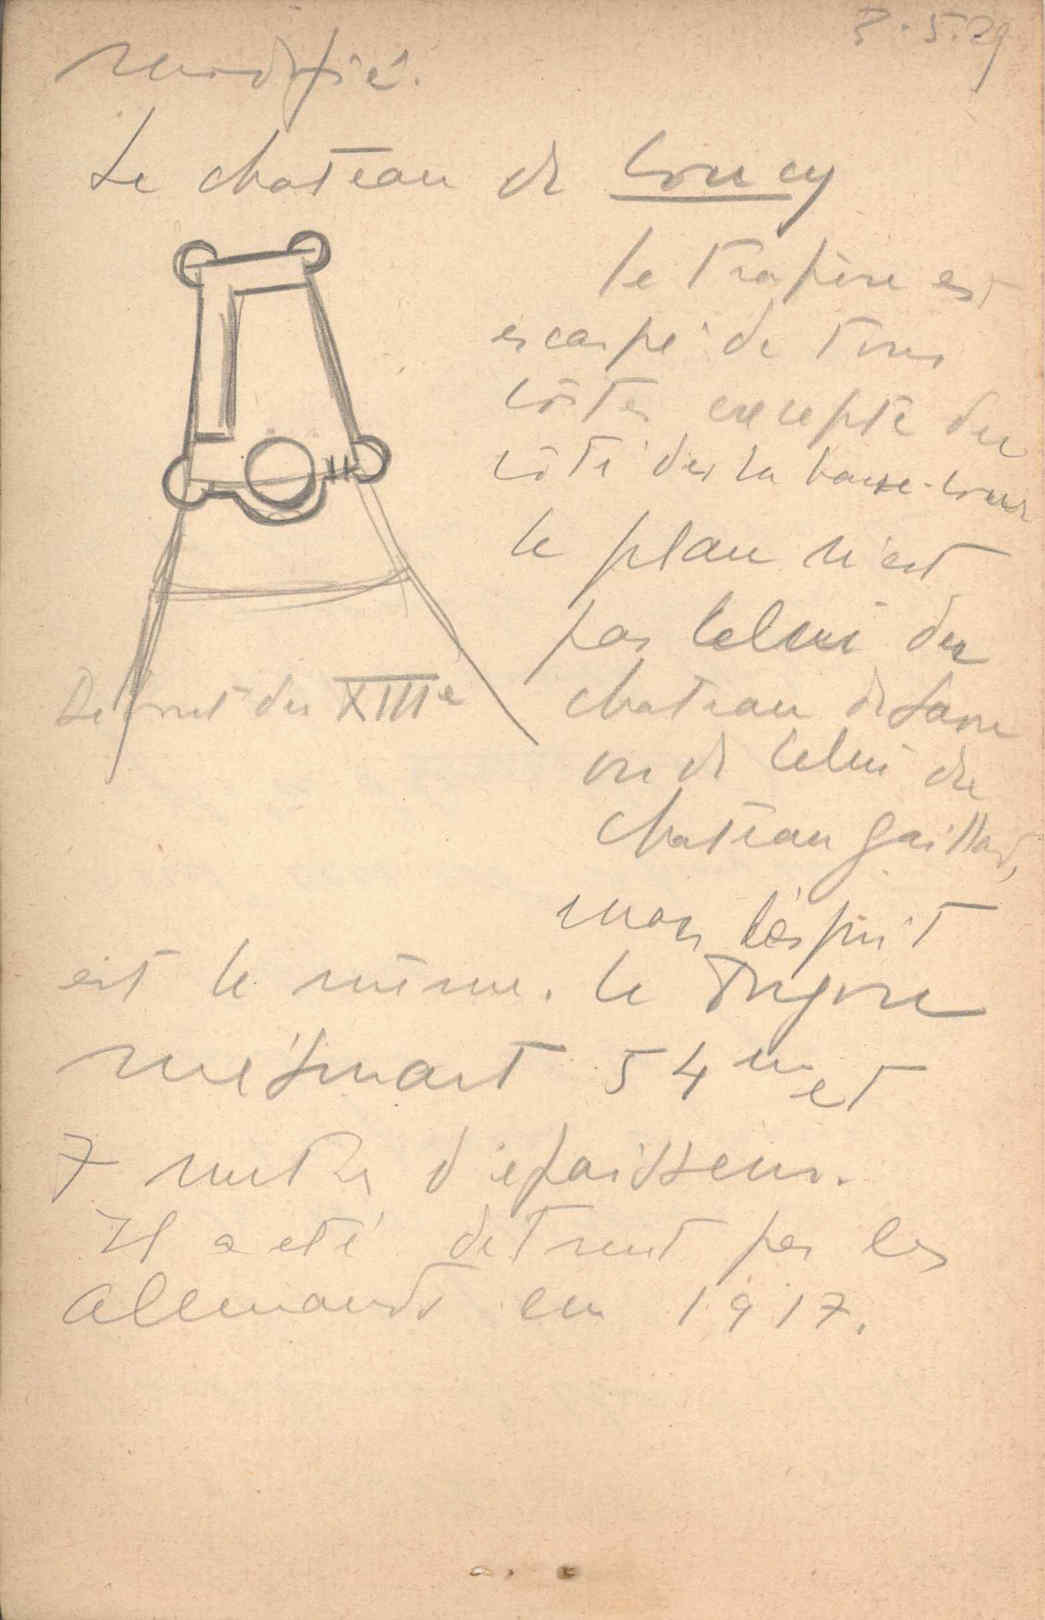 3.5.29
modifié.
Le chateau de Coucy
le trapèze est
escarpé de tous
côtés excepté du
côté de la basse-cour
le plan n'est
pas celui du
Debut du XIIIe
chateau de
ou de celui du
chateau Gaillard,
mais l'esprit
est le même. le Donjon
mesurant 54 m et
7 metres d'epaisseur.
Il a eté detruit par les
allemands en 1917.